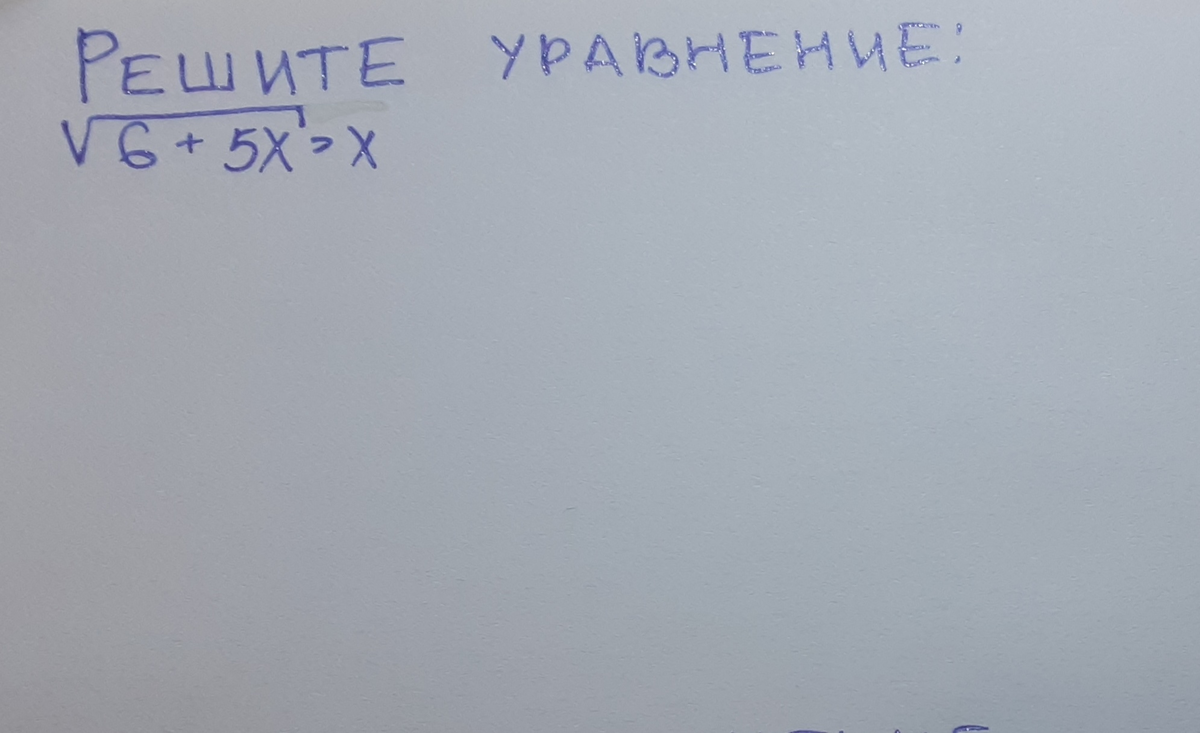 РЕШИТЕ УРАВНЕНИЕ:
√6 + 5x = x